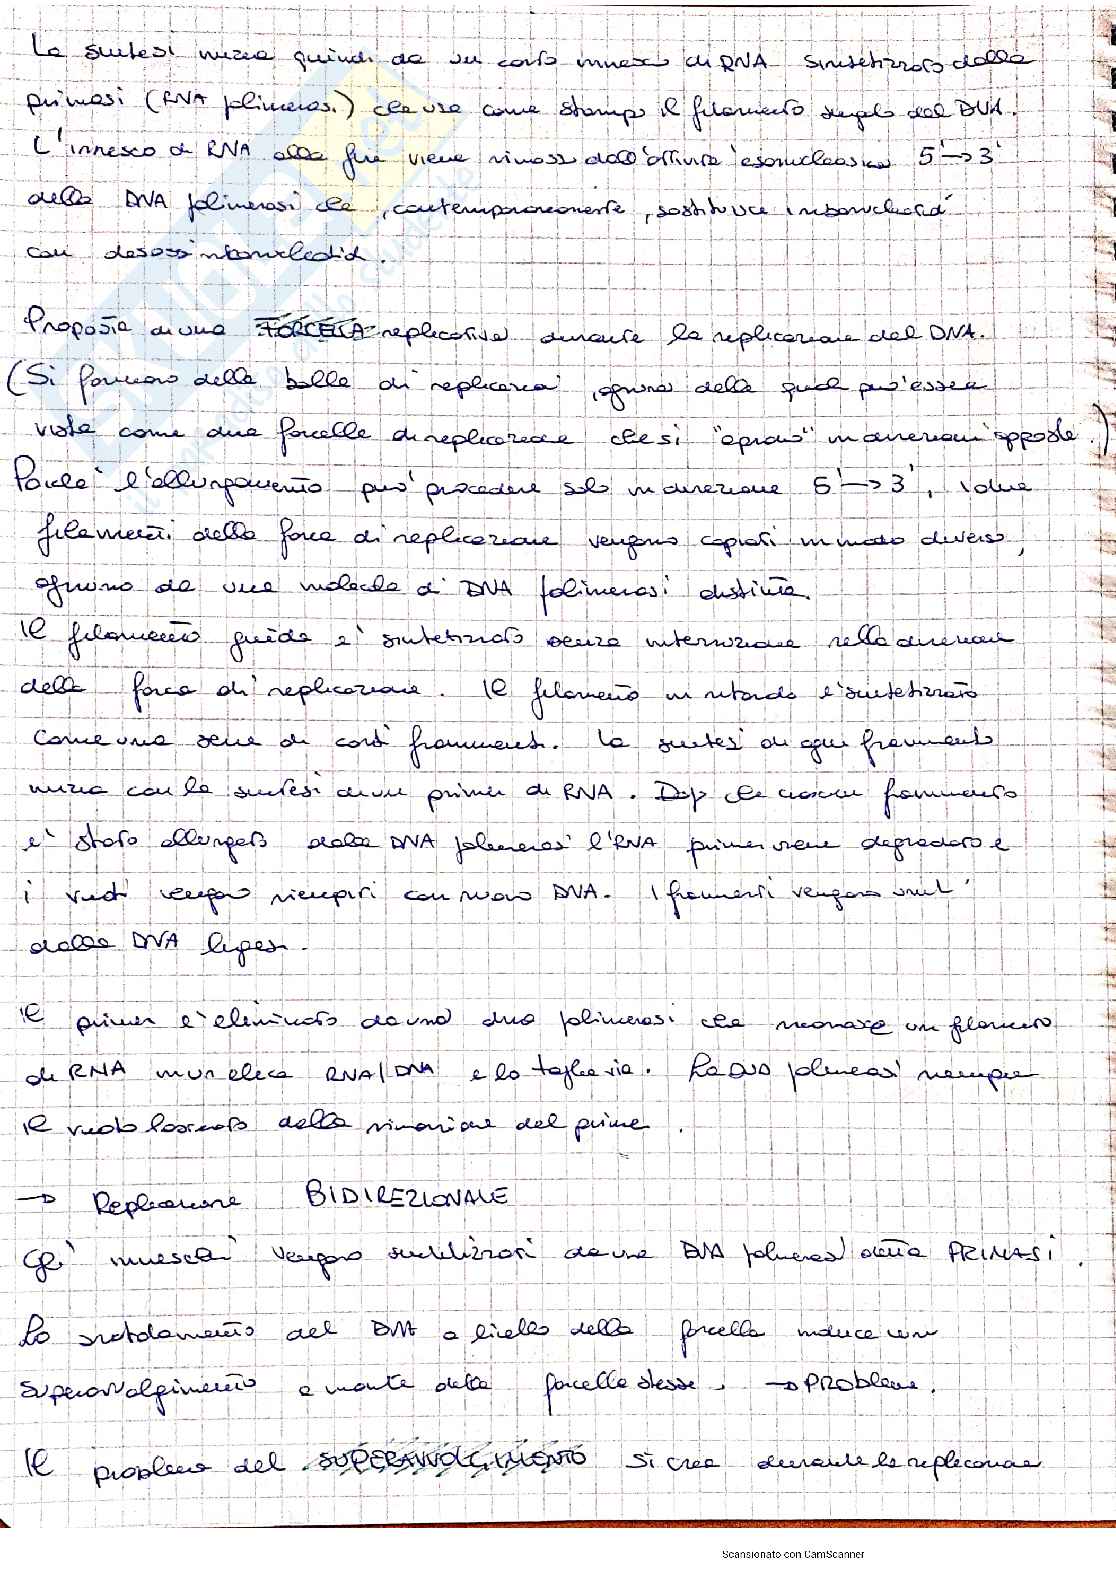 La sintesi inizia quindi da un corto innesco di RNA sintetizzato dalla
primasi (RNA polimerasi) che usa come stampo il filamento singolo del DNA.
L'innesco di RNA alla fine viene rimosso dall'attività esonucleasica 5'→3'
della DNA polimerasi che, contemporaneamente, sostituisce i ribonucleotidi
con desossiribonucleotidi.
Proposta di una FORCELLA replicativa durante la replicazione del DNA.
(Si formano delle bolle di replicazione, ognuna delle quali può essere
vista come due forcelle di replicazione che si "aprono" in direzioni opposte.)
Poiché l'allungamento può procedere solo in direzione 5'→3', i due
filamenti della forca di replicazione vengono copiati in modo diverso,
ognuno da una molecola di DNA polimerasi distinta.
Il filamento guida è sintetizzato senza interruzione nella direzione
della forca di replicazione. Il filamento in ritardo è sintetizzato
come una serie di corti frammenti. La sintesi di ogni frammento
inizia con la sintesi di un primer di RNA. Dopo che ciascun frammento
è stato allungato dalla DNA polimerasi l'RNA primer viene degradato e
i vuoti vengono riempiti con nuovo DNA. I frammenti vengono uniti
dalla DNA ligasi.
Il primer è eliminato da una dna polimerasi che riconosce un filamento
di RNA in un'elica RNA/DNA e lo taglia via. La DNA polimerasi riempie
il vuoto lasciato dalla rimozione del primer.
→ Replicazione BIDIREZIONALE
Gli inneschi vengono sintetizzati da una DNA polimerasi detta PRIMASI.
Lo srotolamento del DNA a livello della forcella induce un
superavvolgimento a monte della forcella stessa. → PROBLEMA.
Il problema del SUPERAVVOLGIMENTO si crea durante la replicazione
Scansionato con CamScanner